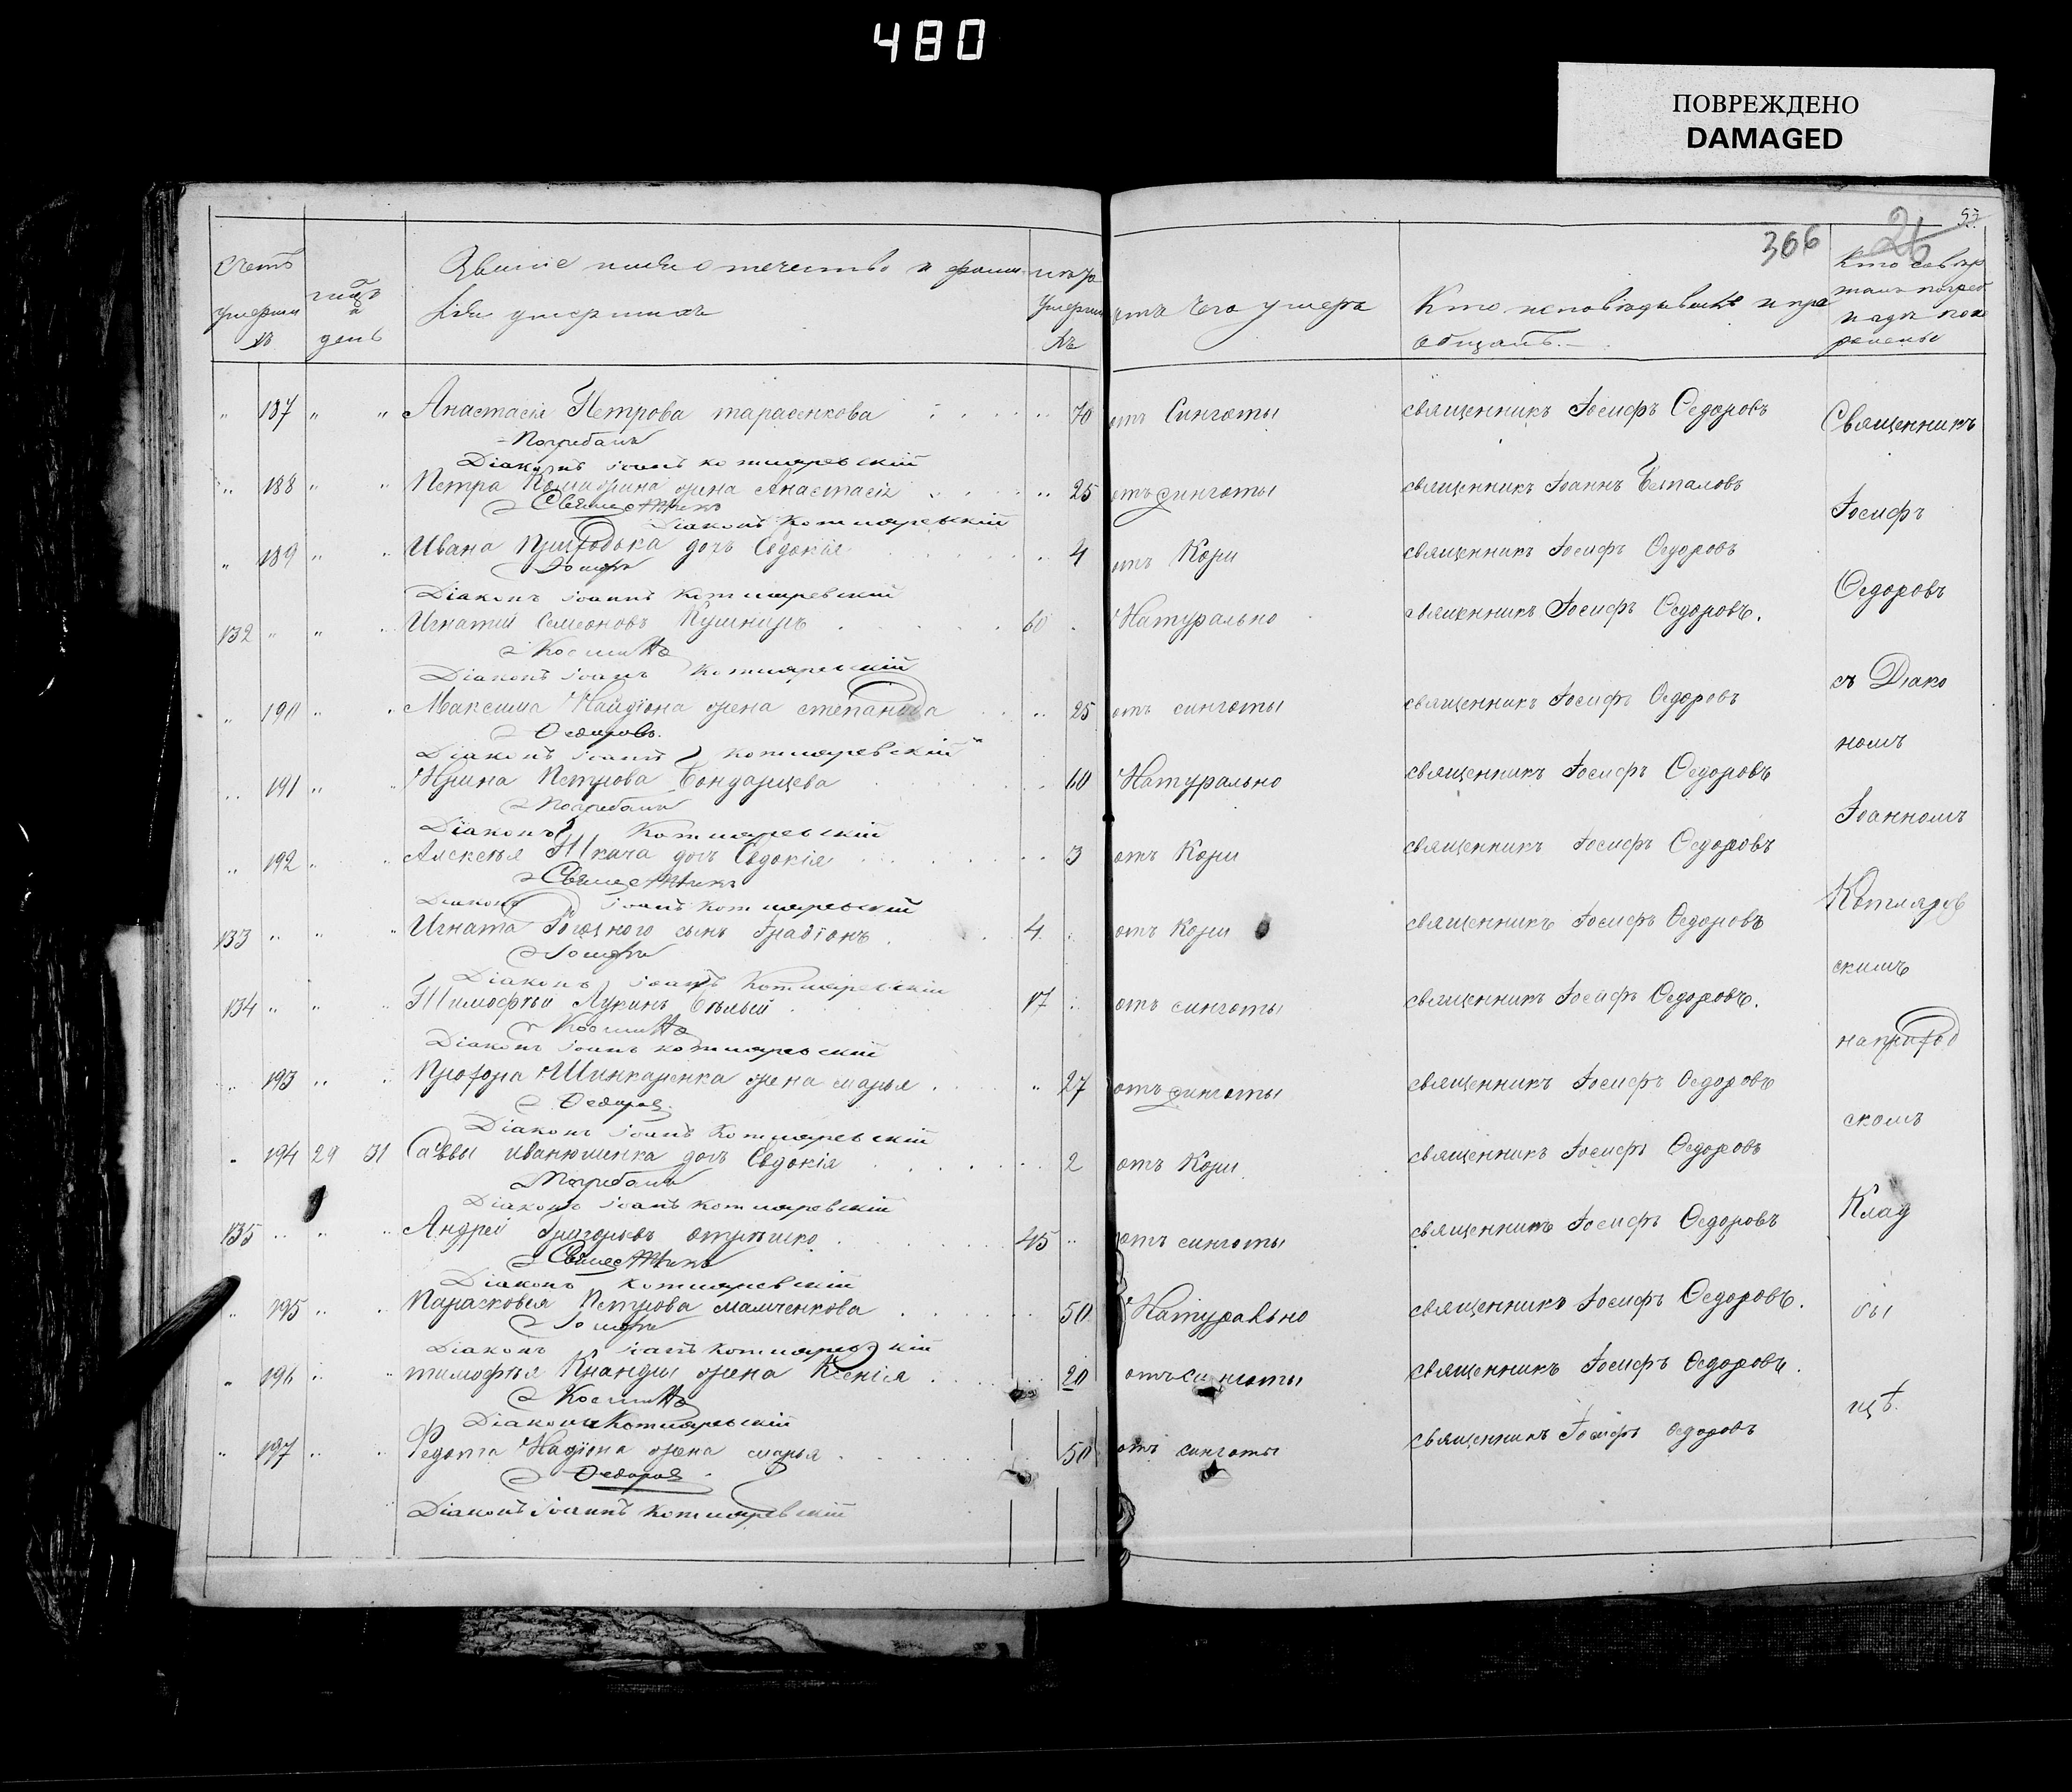 480
ПОВРЕЖДЕНО
DAMAGED
366
26
Счетъ умершихъ
день
Званіе имя отечество и фами
лія умершихъ
умершихъ
отъ чего умеръ
Кто исповѣдывалъ и прі
общалъ.
" 187 " " Анастасія Петрова тарасенкова 70 отъ Синготы священникъ Іосифъ Ѳедоровъ Священникъ
Погребалъ
Діаконъ Іоаннъ котляревскій
" 188 " " Петра жена Анастасія 25 отъ синготы священникъ Іоаннъ Беспаловъ Іосифъ
Священникъ
Діаконъ Котляревскій
" 189 " " Ивана Приходька дочь Евдокія 4 отъ Кори священникъ Іосифъ Ѳедоровъ Ѳедоровъ
Іосифъ
Діаконъ Іоаннъ Котляревскій
132 " " " Игнатій Семеоновъ Кушниръ 60 Натурально священникъ Іосифъ Ѳедоровъ. съ Діако
Діаконъ Іоаннъ Котляревскій
" 190 " " Максима Найдіона жена степанида 25 отъ синготы священникъ Іосифъ Ѳедоровъ номъ
Ѳедоровъ.
Діаконъ Іоаннъ котляревскій
" 191 " " Ирина Петрова Бондарцева 60 Натурально священникъ Іосифъ Ѳедоровъ Іоанномъ
Погребалъ
Діаконъ Котляревскій
" 192 " " Алексѣя Ткача дочь Евдокія 3 отъ Кори священникъ Іосифъ Ѳедоровъ Котляров
Священникъ
Діаконъ Іоаннъ котляревскій
133 " " " Игната сынъ Ірадіонъ 4 отъ Кори священникъ Іосифъ Ѳедоровъ скимъ
Іосифъ
Діаконъ Іоаннъ Котляревскій
134 " " " Тимофѣй Лукинъ Бѣлый 17 отъ синготы священникъ Іосифъ Ѳедоровъ. на приход
Діаконъ Іоаннъ котляревскій
" 193 " " Прохора Шинкаренка жена марья 27 отъ синготы священникъ Іосифъ Ѳедоровъ скомъ
Ѳедоровъ
Діаконъ Іоаннъ Котляревскій
" 194 29 31 Саввы иванюшенка дочь Евдокія 2 отъ Кори священникъ Іосифъ Ѳедоровъ Клад
Погребалъ
Діаконъ Іоаннъ котляревскій
135 " " " Андрей Григорьевъ 45 отъ синготы священникъ Іосифъ Ѳедоровъ
Священникъ
Діаконъ котляревскій
" 195 " " Парасковея Петрова мамченкова 50 Натурально священникъ Іосифъ Ѳедоровъ. би
Іосифъ
Діаконъ Іоаннъ котляревскій
" 196 " " тимофѣя жена Ксенія 20 отъ синготы священникъ Іосифъ Ѳедоровъ. щѣ.
Діаконъ Котляревскій
" 197 " " Ѳедота Надіона жена марья 50 отъ синготы священникъ Іосифъ Ѳедоровъ
Ѳедоровъ
Діаконъ Іоаннъ котляревскій